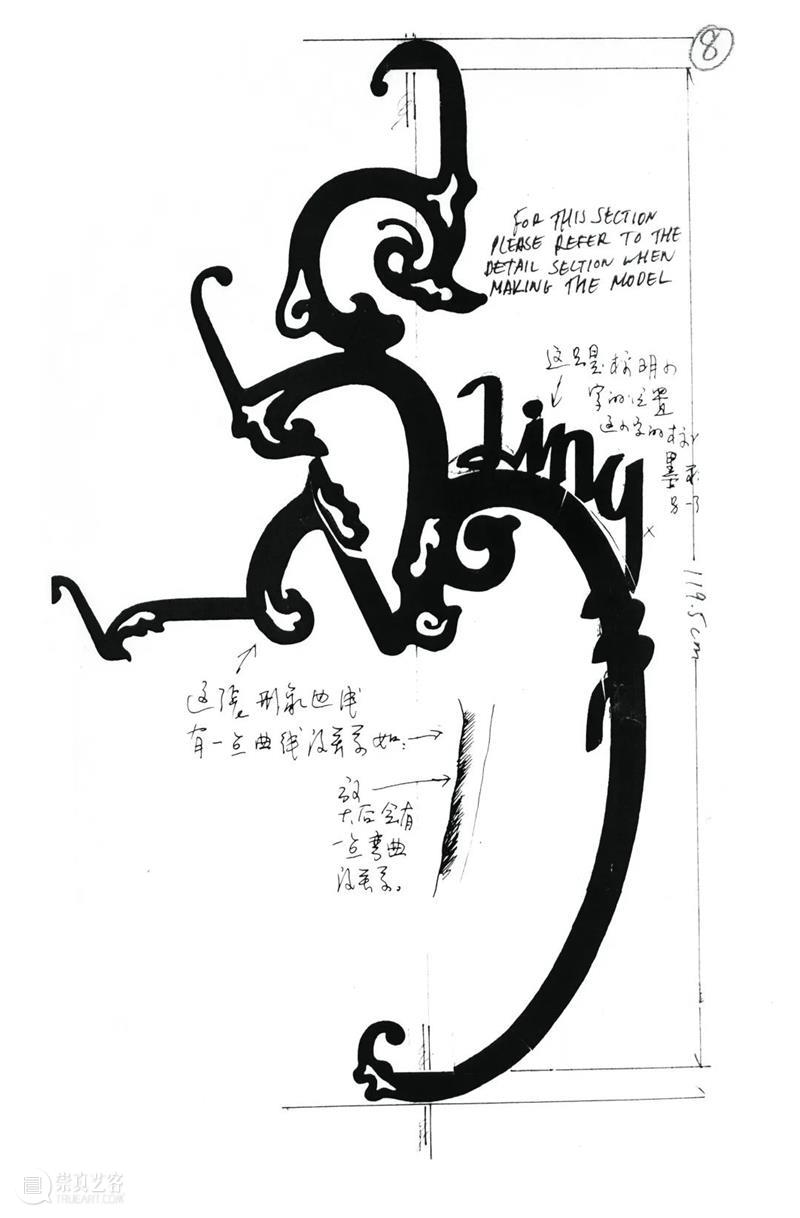 8
FOR THIS SECTION
PLEASE REFER TO THE
DETAIL SECTION WHEN
MAKING THE MODEL
这只是标明小
字的位置
这小字的标
Ling
119.5cm
这张形象曲线
有一点曲线没关系如:
放
大后会有
一点弯曲
没关系。
崇真艺客
TRUEART.COM